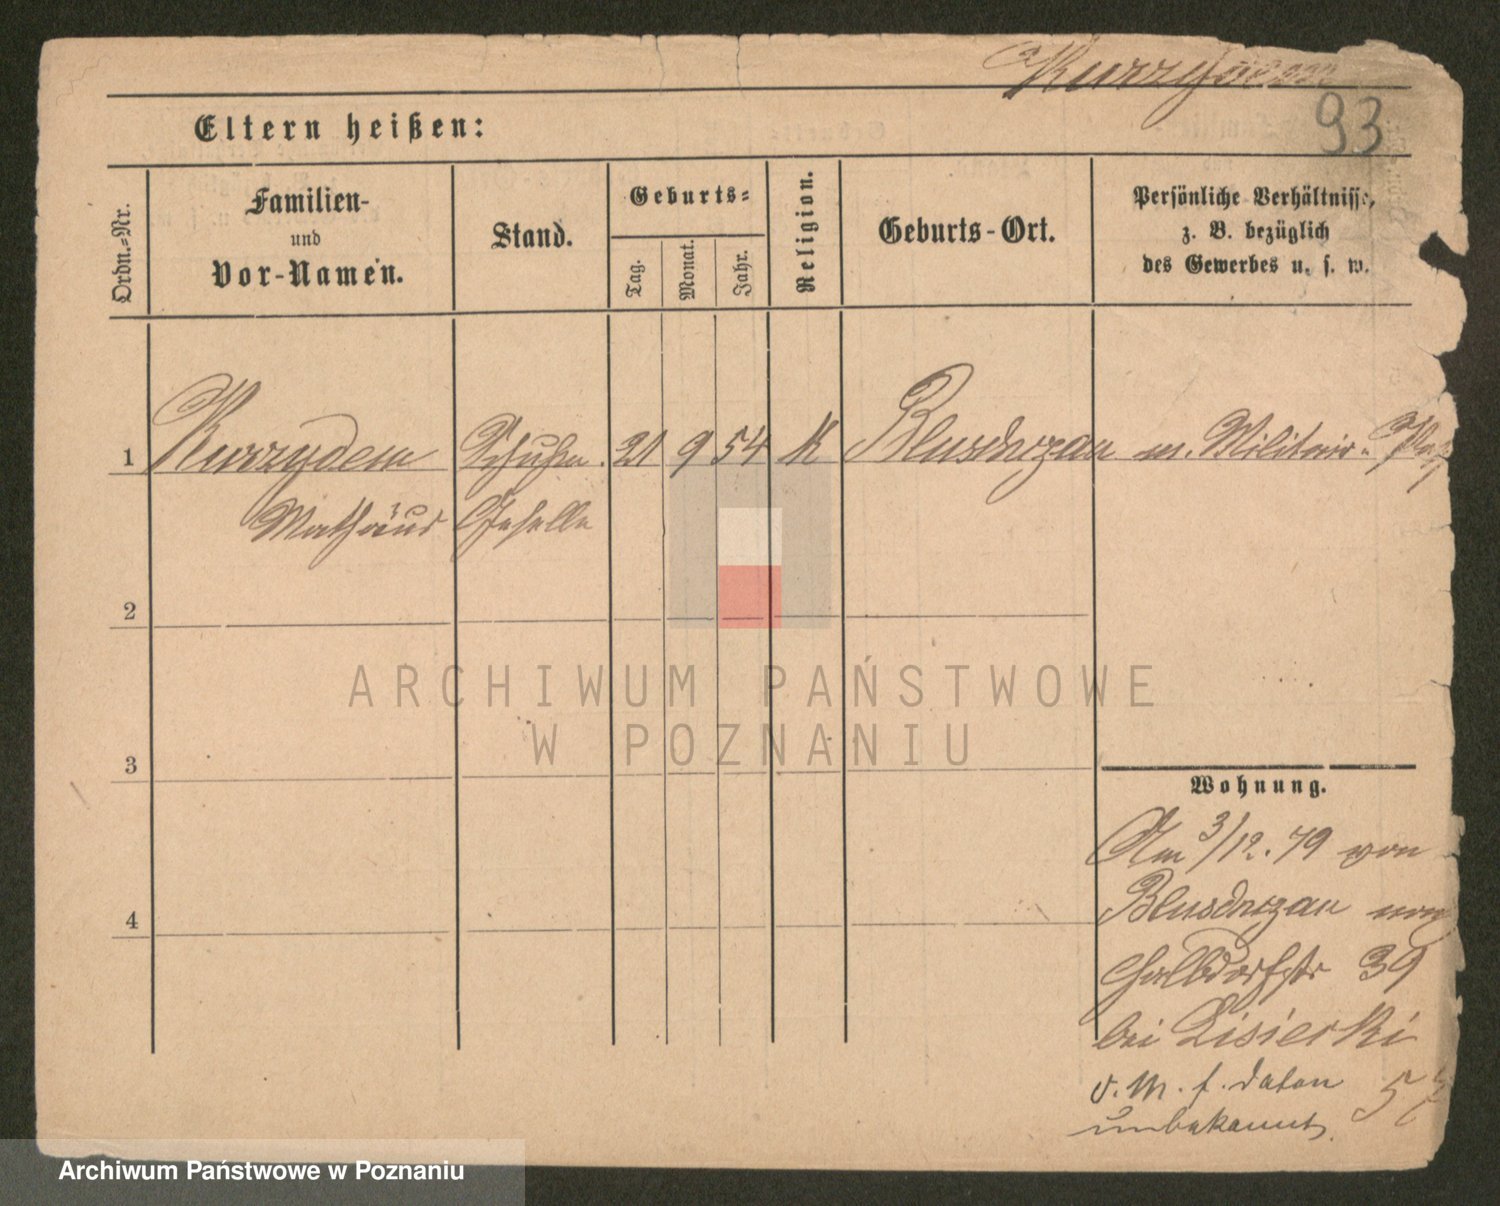 Kurzydem
93
Eltern heißen:
Ordn.-Nr.
Familien-
und
Vor-Namen.
Stand.
Geburts-
Tag.
Monat.
Jahr.
Religion.
Geburts-Ort.
Persönliche Verhältnisse,
z. B. bezüglich
des Gewerbes u. s. w.
1 Kurzydem Schuhm. 21 9 54 K m. Militair-
Mathäus Geselle
2
3
4
Wohnung.
Am 3/12. 79 von
Halbdorfstr 39
bei Lisiecki
v. M. f. daton 57
unbekannt.
ARCHIWUM PAŃSTWOWE
W POZNANIU
Archiwum Państwowe w Poznaniu